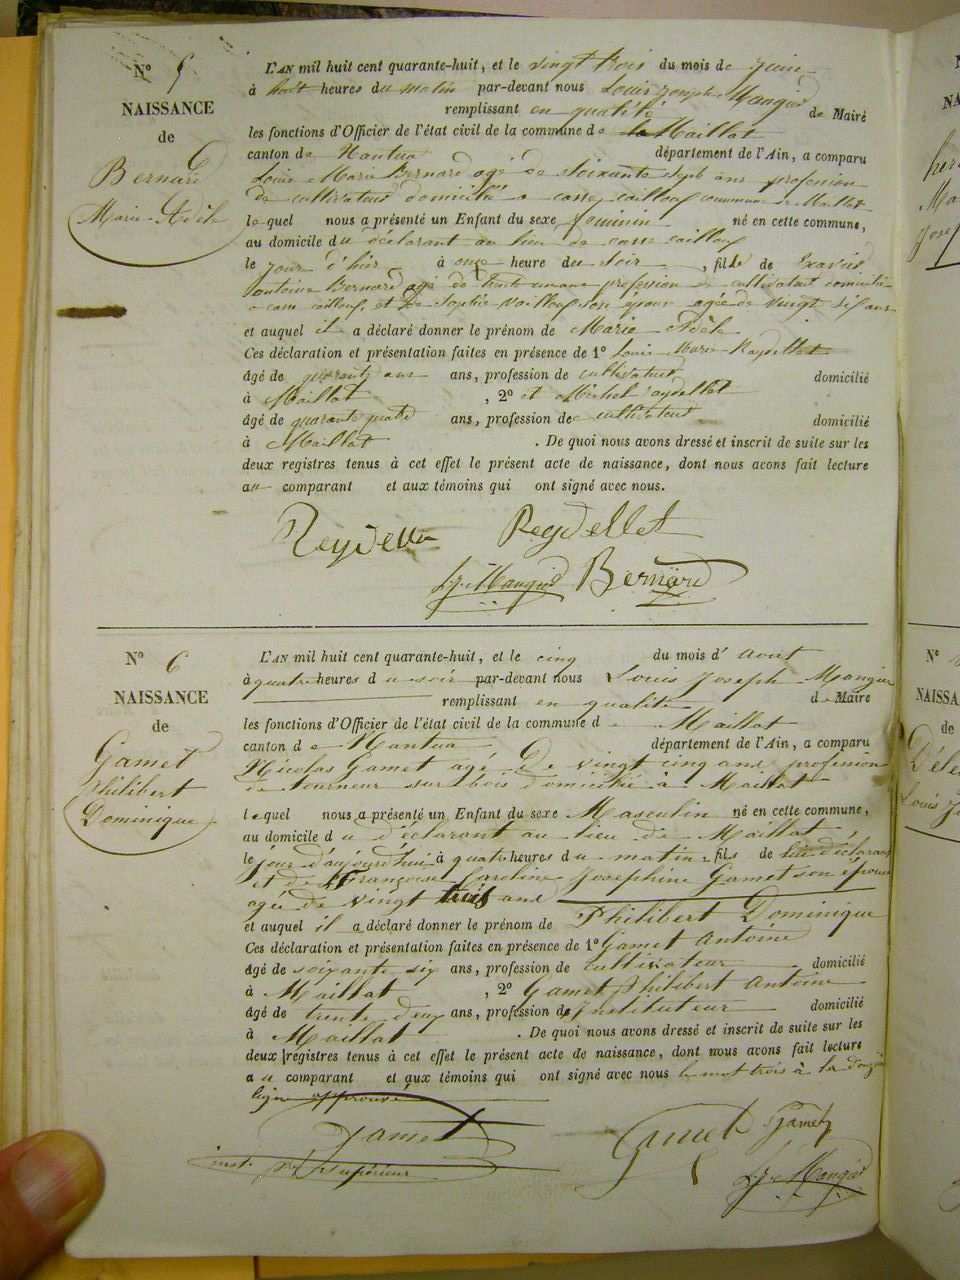 N° 5
NAISSANCE
de
Bernard
Marie-Adèle
L'AN mil huit cent quarante-huit, et le vingt trois du mois de Juin
à huit heures du matin par-devant nous Louis Joseph Mangier
remplissant en qualité de Maire
les fonctions d'Officier de l'état civil de la commune de Maillat
canton de Nantua département de l'Ain, a comparu
Louis Marie Bernard agé de Soixante sept ans profession
de cultivateur domicilié à commune de Maillat
lequel nous a présenté un Enfant du sexe féminin né en cette commune,
au domicile du déclarant au lieu de
le jour d'hier à onze heure du Soir, fille de
Antoine Bernard agé de Trente ans profession de cultivateur domicilié
et de Sophie son épouse agée de vingt ans
et auquel il a déclaré donner le prénom de Marie Adèle
Ces déclaration et présentation faites en présence de 1° Louis Marie Reydellet
âgé de quarante ans ans, profession de cultivateur domicilié
à Maillat, 2° et Michel Reydellet
âgé de quarante quatre ans, profession de cultivateur domicilié
à Maillat. De quoi nous avons dressé et inscrit de suite sur les
deux registres tenus à cet effet le présent acte de naissance, dont nous avons fait lecture
au comparant et aux témoins qui ont signé avec nous.
Reydellet Reydellet
Ls Jh Mangier Bernard
N° 6
NAISSANCE
de
Gamet
Philibert
Dominique
L'AN mil huit cent quarante-huit, et le cinq du mois d'Aout
à quatre heures du soir par-devant nous Louis Joseph Mangier
remplissant en qualité de Maire
les fonctions d'Officier de l'état civil de la commune de Maillat
canton de Nantua département de l'Ain, a comparu
Nicolas Gamet agé de vingt cinq ans profession
de tourneur sur bois domicilié à Maillat
lequel nous a présenté un Enfant du sexe Masculin né en cette commune,
au domicile du déclarant au lieu de Maillat
le jour d'aujourd'hui à quatre heures du matin fils de lui déclarant
et de Françoise Caroline Josephine Gamet son épouse
agée de vingt trois ans
et auquel il a déclaré donner le prénom de Philibert Dominique
Ces déclaration et présentation faites en présence de 1° Gamet Antoine
âgé de soixante six ans, profession de cultivateur domicilié
à Maillat, 2° Gamet Philibert Antoine
âgé de trente deux ans, profession d'Instituteur domicilié
à Maillat. De quoi nous avons dressé et inscrit de suite sur les
deux registres tenus à cet effet le présent acte de naissance, dont nous avons fait lecture
au comparant et aux témoins qui ont signé avec nous le mot trois à la
ligne approuvé
Gamet Gamet Gamet
inst. supérieur
Ls Jh Mangier